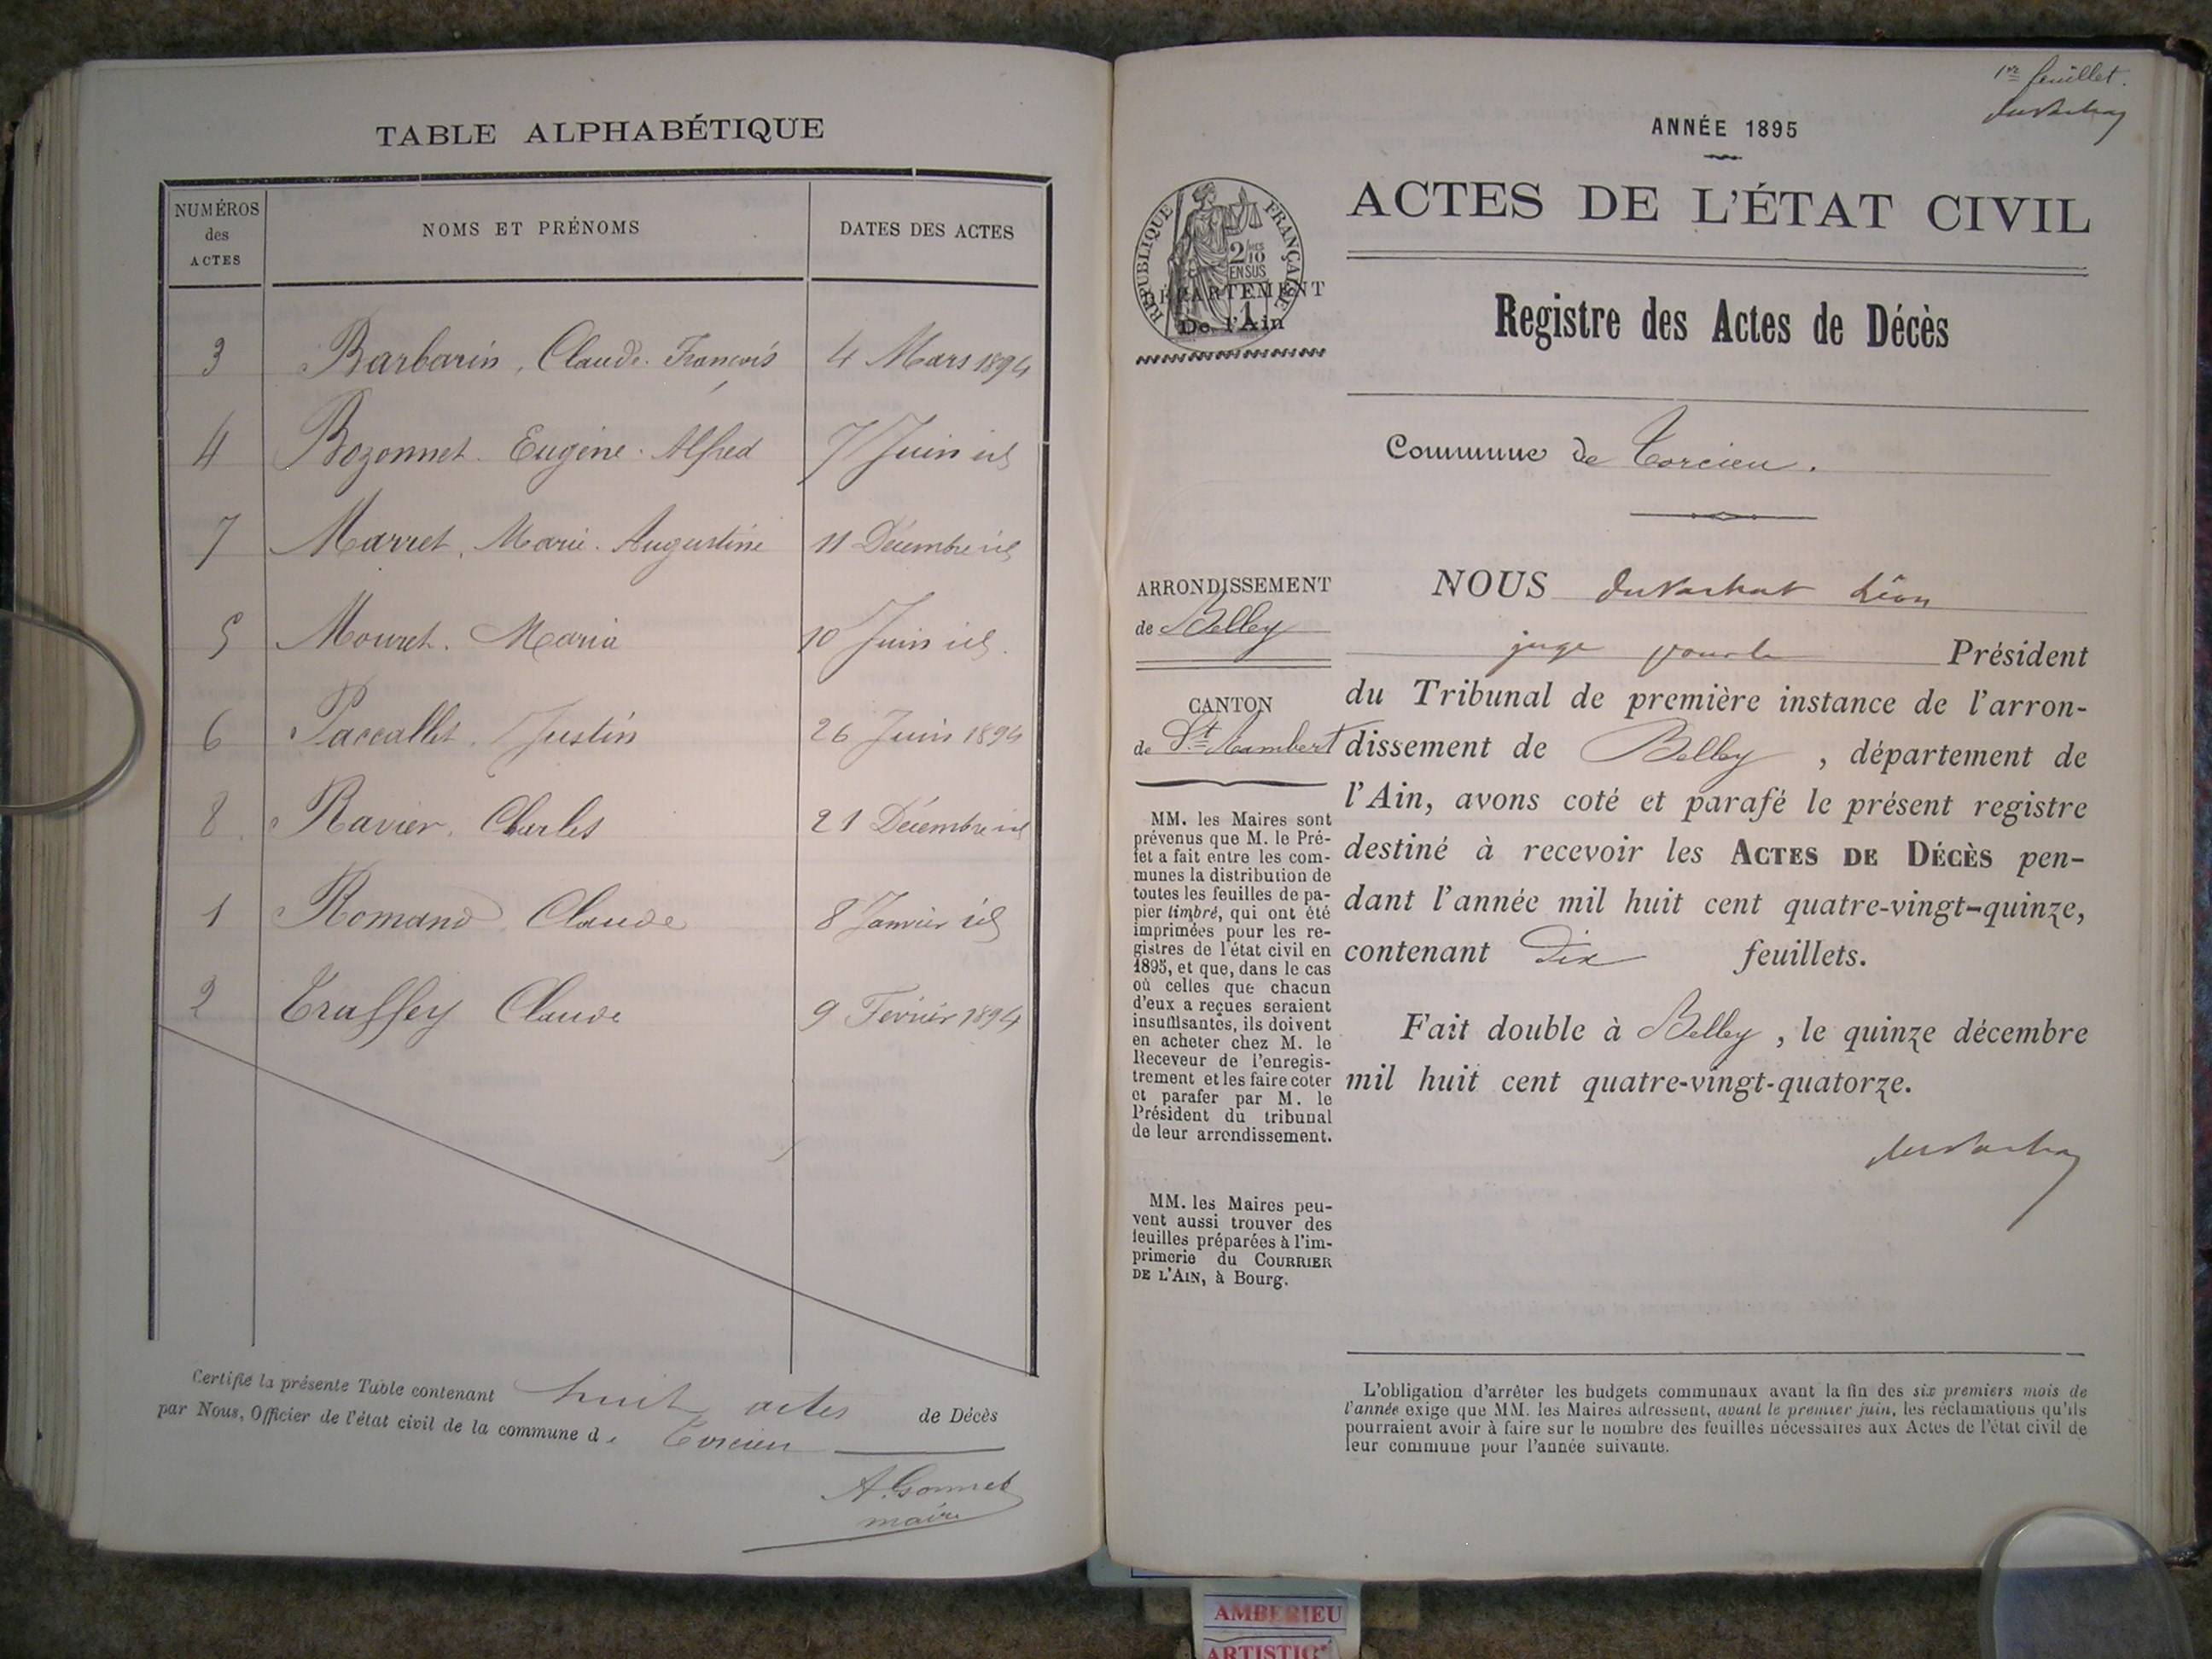 TABLE ALPHABÉTIQUE
NUMÉROS des ACTES
NOMS ET PRÉNOMS
DATES DES ACTES
3 Barbarin, Claude François 4 Mars 1894
4 Bozonnet Eugène Alfred 7 Juin id
7 Marret, Marie Augustine 11 Décembre id
5 Mouret. Maria 10 Juin id.
6 Paccallet, Justin 26 Juin 1894
8 Ravier, Charles 21 Décembre id
1 Romand Claude 8 Janvier id
2 Traffey Claude 9 Février 1894
Certifié la présente Table contenant huit actes de Décès
par Nous, Officier de l'état civil de la commune de Torcieu
A. Gonnet
maire
1er feuillet.
ANNÉE 1895
ACTES DE L'ÉTAT CIVIL
RÉPUBLIQUE FRANÇAISE
2/10
EN SUS
DÉPARTEMENT
De l'Ain
Registre des Actes de Décès
Commune de Torcieu.
ARRONDISSEMENT
de Belley
CANTON
de St Rambert
MM. les Maires sont
prévenus que M. le Pré-
fet a fait entre les com-
munes la distribution de
toutes les feuilles de pa-
pier timbré, qui ont été
imprimées pour les re-
gistres de l'état civil en
1895, et que, dans le cas
où celles que chacun
d'eux a reçues seraient
insuffisantes, ils doivent
en acheter chez M. le
Receveur de l'enregis-
trement et les faire coter
et parafer par M. le
Président du tribunal
de leur arrondissement.
MM. les Maires peu-
vent aussi trouver des
feuilles préparées à l'im-
primerie du COURRIER
DE L'AIN, à Bourg.
NOUS Duvachat Léon
juge pour le Président
du Tribunal de première instance de l'arron-
dissement de Belley, département de
l'Ain, avons coté et parafé le présent registre
destiné à recevoir les ACTES DE DÉCÈS pen-
dant l'année mil huit cent quatre-vingt-quinze,
contenant Dix feuillets.
Fait double à Belley, le quinze décembre
mil huit cent quatre-vingt-quatorze.
L'obligation d'arrêter les budgets communaux avant la fin des six premiers mois de
l'année exige que MM. les Maires adressent, avant le premier juin, les réclamations qu'ils
pourraient avoir à faire sur le nombre des feuilles nécessaires aux Actes de l'état civil de
leur commune pour l'année suivante.
AMBERIEU
ARTISTIC